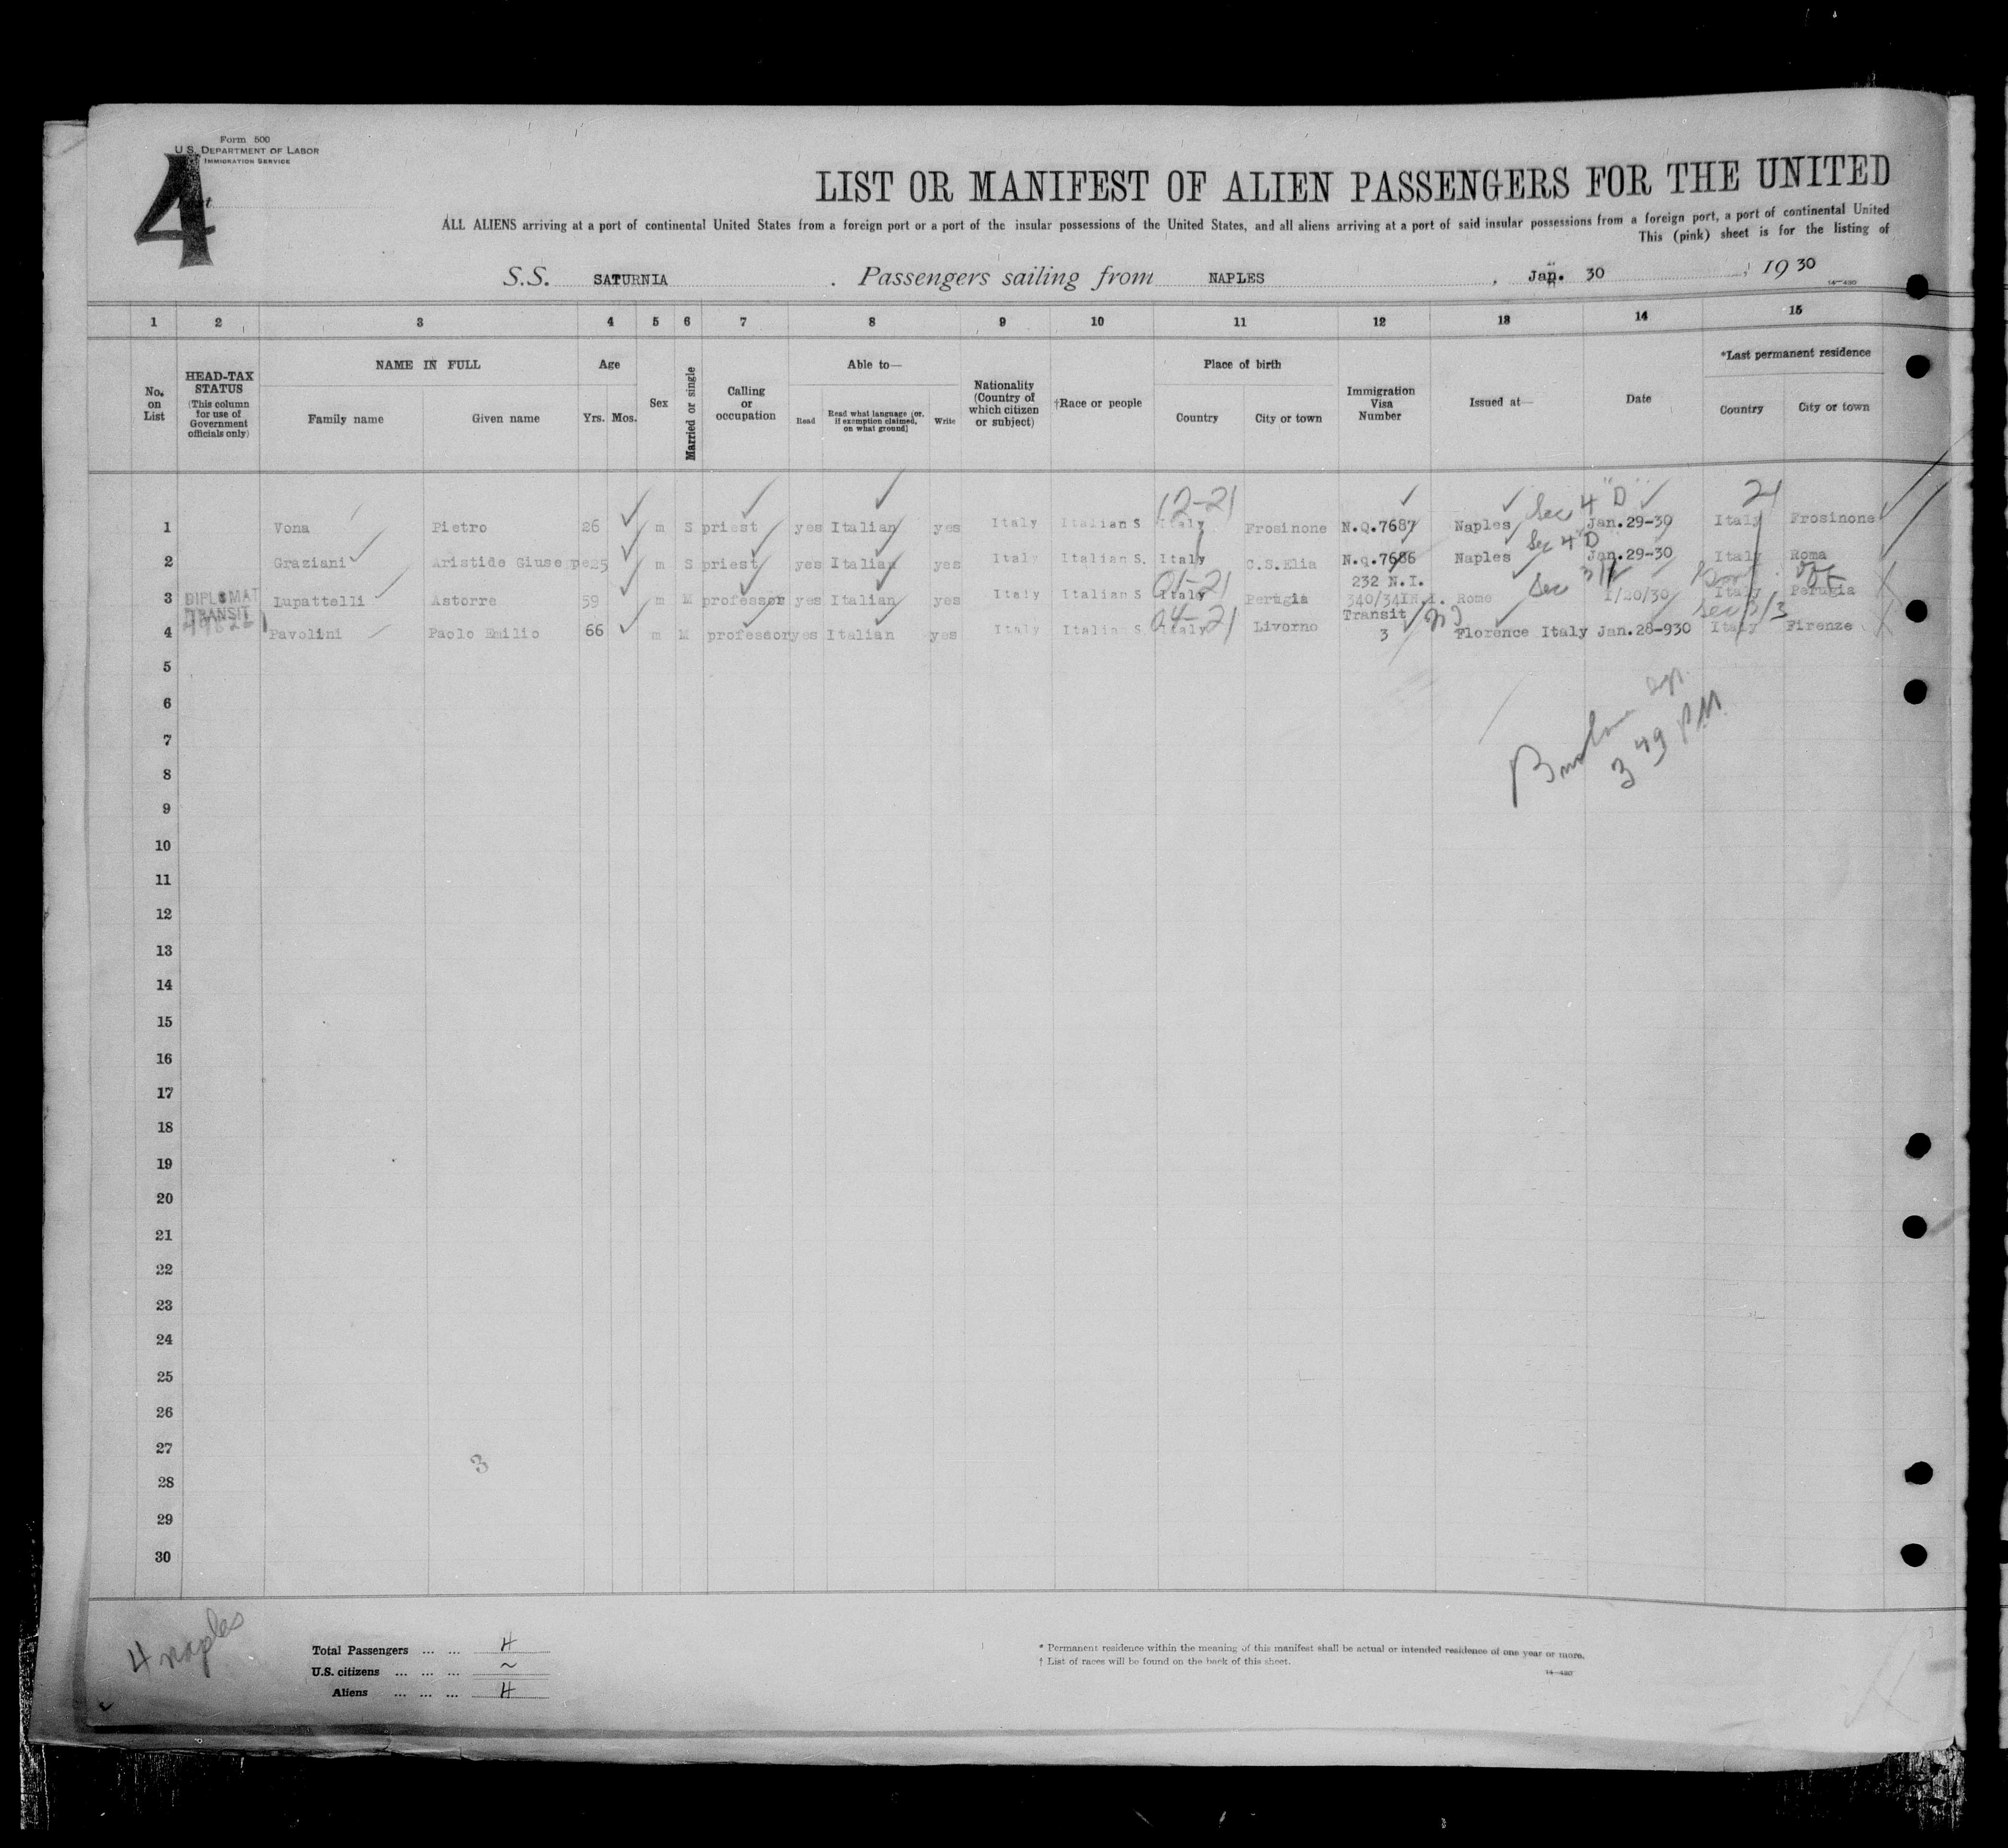 Form 500
U.S. DEPARTMENT OF LABOR
IMMIGRATION SERVICE
4
LIST OR MANIFEST OF ALIEN PASSENGERS FOR THE UNITED
ALL ALIENS arriving at a port of continental United States from a foreign port or a port of the insular possessions of the United States, and all aliens arriving at a port of said insular possessions from a foreign port, a port of continental United
This (pink) sheet is for the listing of
S.S. SATURNIA . Passengers sailing from NAPLES , Jan. 30 , 19 30
1 2 3 4 5 6 7 8 9 10 11 12 13 14 15
No. on List
HEAD-TAX STATUS (This column for use of Government officials only)
NAME IN FULL
Family name Given name
Age
Yrs. Mos.
Sex
Married or single
Calling or occupation
Able to—
Read Read what language [or, if exemption claimed, on what ground] Write
Nationality (Country of which citizen or subject)
†Race or people
Place of birth
Country City or town
Immigration Visa Number
Issued at—
Date
*Last permanent residence
Country City or town
12-21 Sec 4 "D" 21
1 Vona Pietro 26 m S priest yes Italian yes Italy Italian S Italy Frosinone N.Q.7687 Naples Jan.29-30 Italy Frosinone
Sec 4 "D
2 Graziani Aristide Giuseppe 25 m S priest yes Italian yes Italy Italian S. Italy C.S.Elia N.q.7686 Naples Jan.29-30 Italy Roma
01-21 232 N.I. Sec 3/2
3 DIPLOMAT Lupattelli Astorre 59 m M professor yes Italian yes Italy Italian S Italy Perugia 340/34 Rome 1/20/30 Italy Perugia
TRANSIT 04-21 Transit Sec 3/3
4 Pavolini Paolo Emilio 66 m M professor yes Italian yes Italy Italian S Italy Livorno 3 Florence Italy Jan.28-930 Italy Firenze
5
6
7
3 49 PM
8
9
10
11
12
13
14
15
16
17
18
19
20
21
22
23
24
25
26
27
3
28
29
30
4 naples
Total Passengers ... ... 4
U.S. citizens ... ... ... ~
Aliens ... ... ... 4
* Permanent residence within the meaning of this manifest shall be actual or intended residence of one year or more.
† List of races will be found on the back of this sheet.
14—430